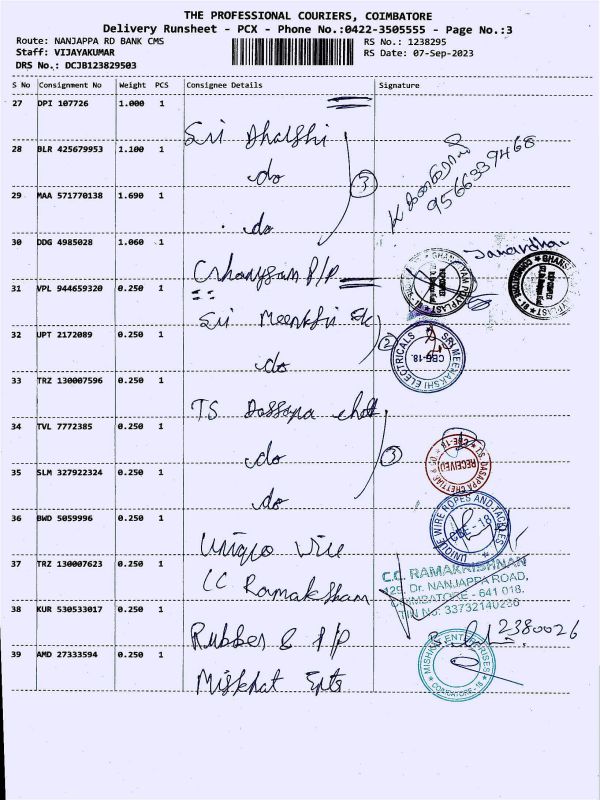 THE PROFESSIONAL COURIERS, COIMBATORE
Delivery Runsheet - PCX - Phone No.:0422-3505555 - Page No.:3
Route: NANJAPPA RD BANK CMS
RS No.: 1238295
Staff: VIJAYAKUMAR
RS Date: 07-Sep-2023
DRS No.: DCJB123829503
S No Consignment No Weight PCS Consignee Details Signature
27 DPI 107726 1.000 1
Sri Dharshi
28 BLR 425679953 1.100 1
do
3
9566339468
29 MAA 571770138 1.690 1
do
30 DDG 4985028 1.060 1
P/P
Janardhan
31 VPL 944659320 0.250 1
Sri Meenkshi
2
SRI MEENAKSHI ELECTRICALS
CBE-18.
32 UPT 2172089 0.250 1
do
33 TRZ 130007596 0.250 1
TS Dassapa
34 TVL 7772385 0.250 1
do
3
T.S. DASAPPA CHETTIAR & CO.
CBE-18
RECEIVED
35 SLM 327922324 0.250 1
do
36 BWD 5059996 0.250 1
Uniqo Wire
UNIQUE WIRE ROPES AND TACKLES
CBE-18
37 TRZ 130007623 0.250 1
CC Ramaksham
C.C. RAMAKRISHNAN
129, Dr. NANJAPPA ROAD,
COIMBATORE - 641 018.
TIN No. 33732140236
38 KUR 530533017 0.250 1
Rubber & P/P
2380026
39 AMD 27333594 0.250 1
Mishkat Ents
MISHKAT ENTERPRISES
COIMBATORE-18